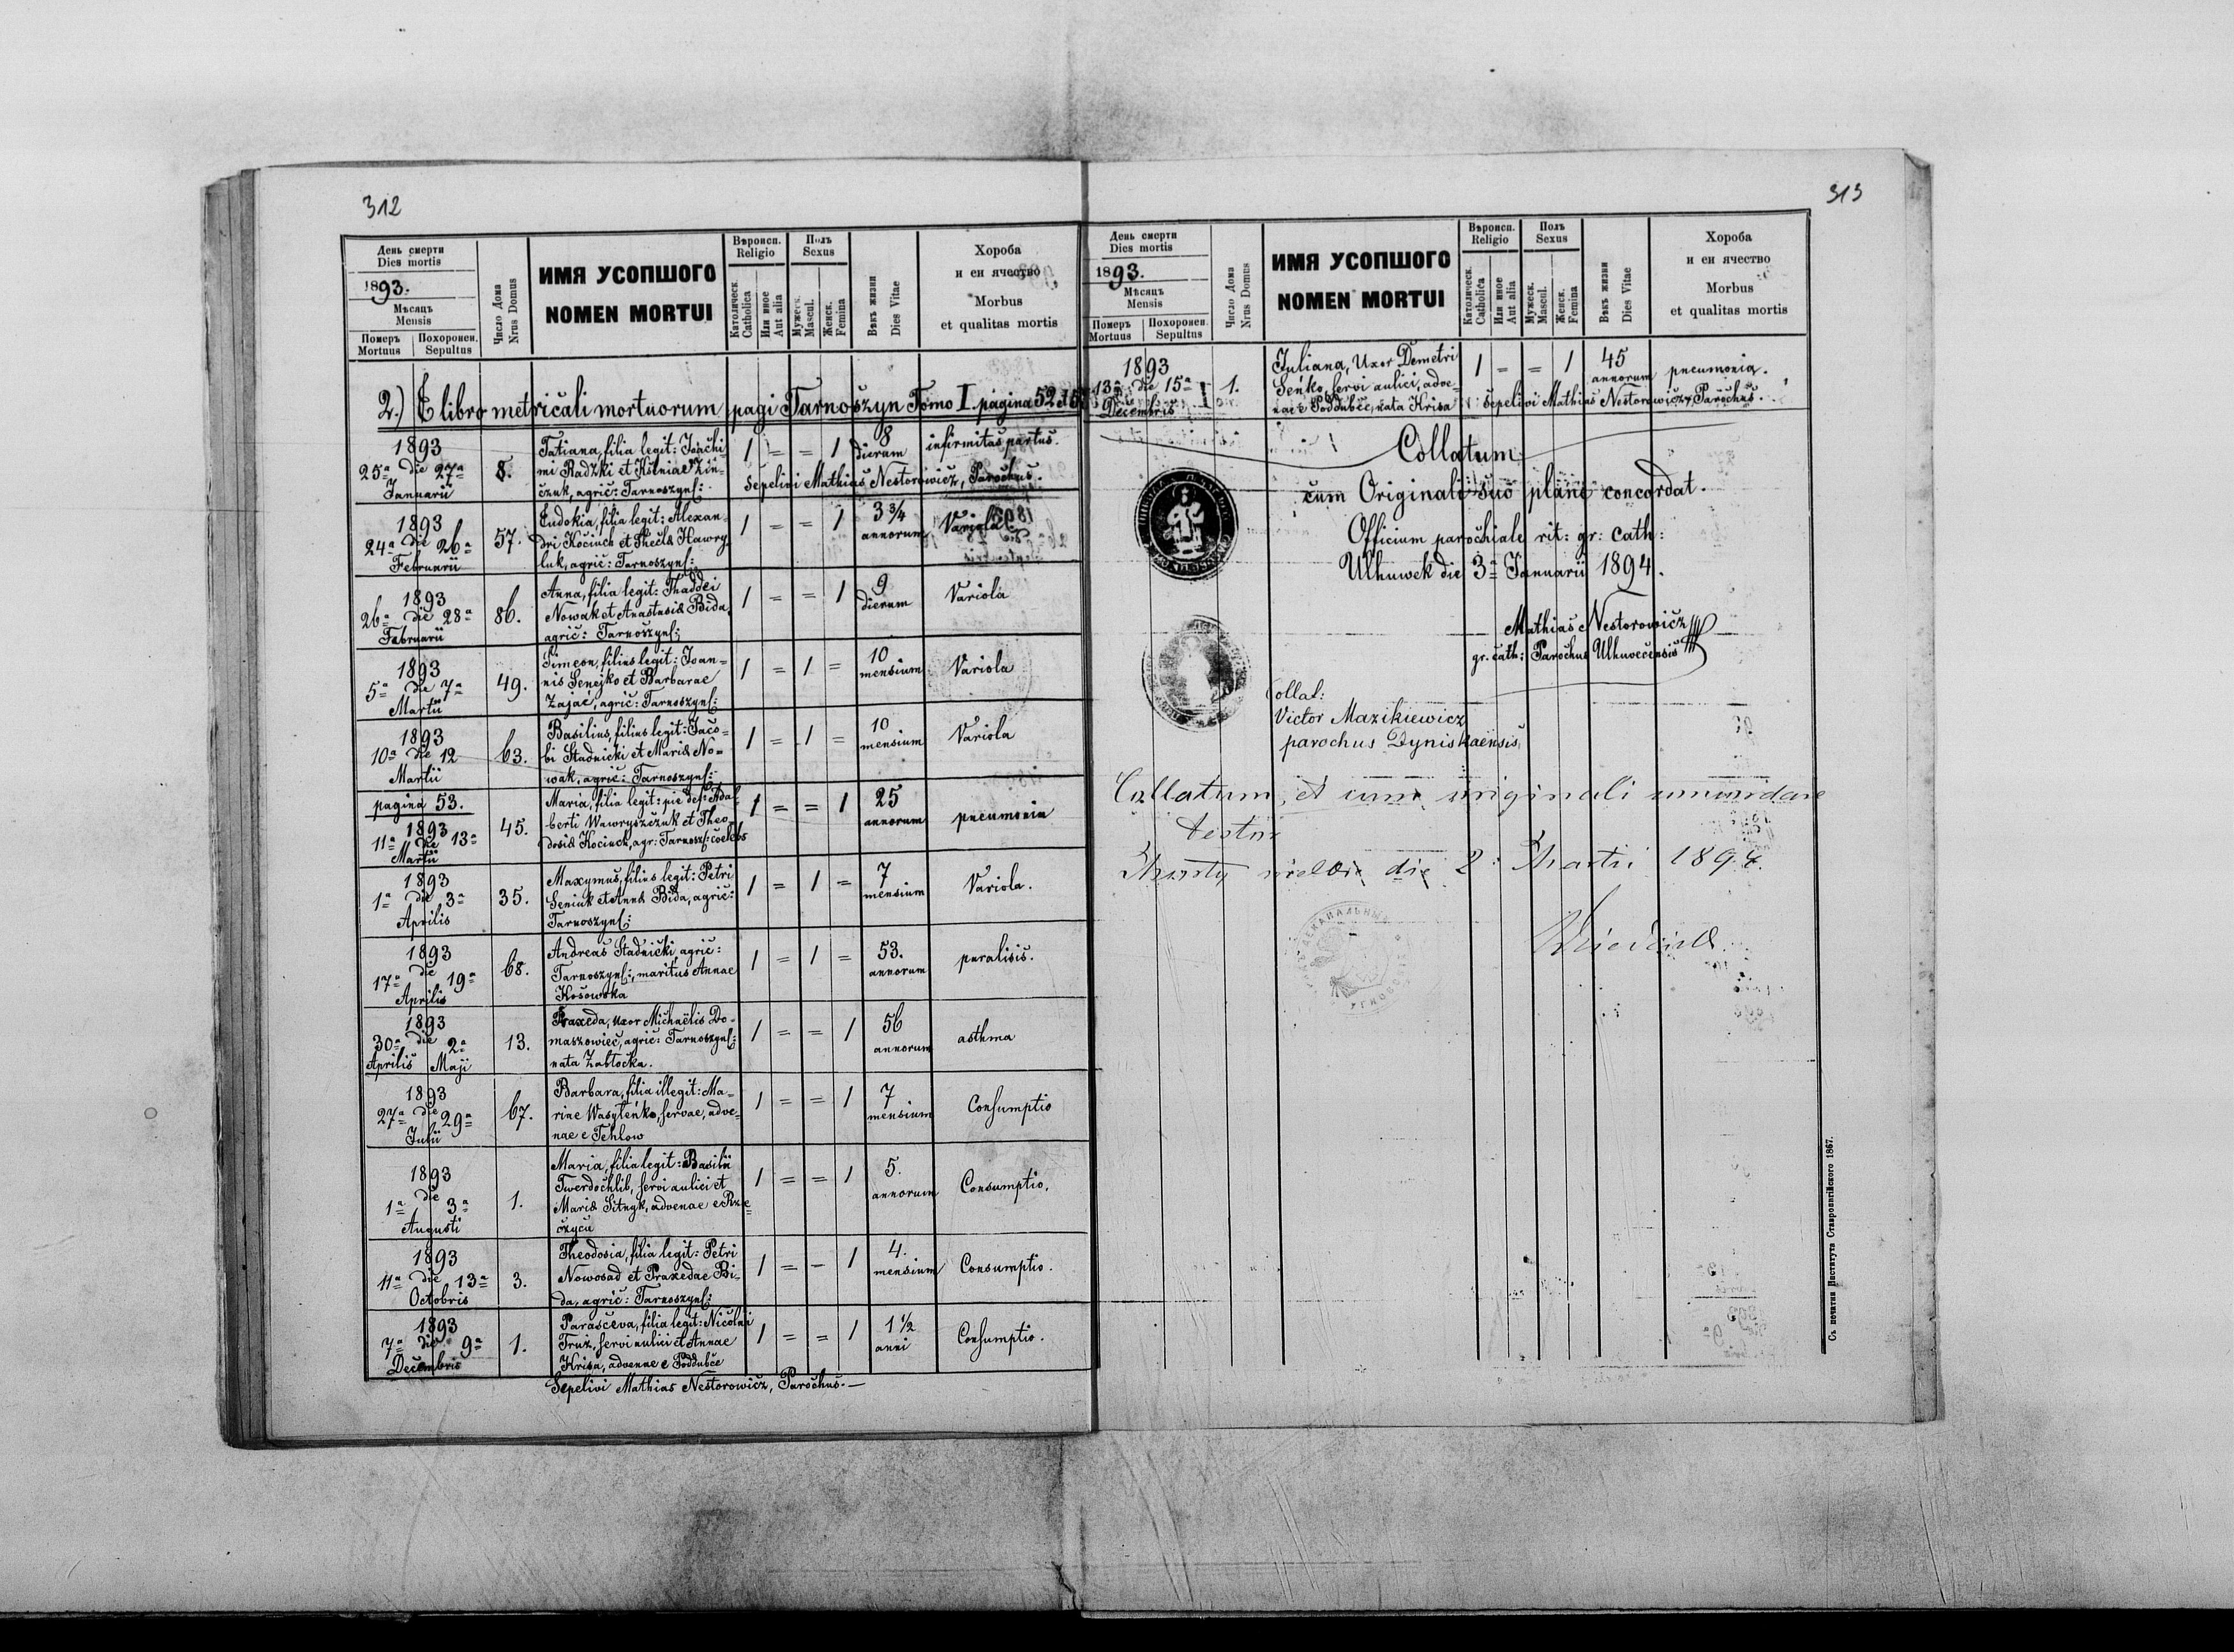 312
День смерти
Dies mortis
1893.
Мѣсяцъ
Mensis
Померъ
Mortuus
Похоронен.
Sepultus
Число Дома
Nrus Domus
ИМЯ УСОПШОГО
NOMEN MORTUI
Вѣроисп.
Religio
Католическ.
Catholica
Или иное
Aut alia
Полъ
Sexus
Мужеск.
Mascul.
Женск.
Femina
Вѣкъ жизни
Dies Vitae
Хороба
и еи ячество
Morbus
et qualitas mortis
2.) E libro metricali mortuorum pagi Tarnoszyn Tomo I. pagina 52 et 53
1893
25ª die 27ª
Januarii
8.
Tatiana, filia legit: Joachi-
mi Radzki et Xeniae Zin-
czuk, agric: Tarnoszyns:
1 = = 1
8
dierum
infirmitas partus.
Sepelivi Mathias Nestorowicz, Parochus.
1893
24ª die 26ª
Februarii
57.
Eudokia, filia legit: Alexan-
dri Kociuck et Theclae Hawry-
luk, agric: Tarnoszyns:
1 = = 1
3 3/4
annorum
Variola
1893
26ª die 28ª
Februarii
86.
Anna, filia legit: Thaddei
Nowak et Anastasiae Bida,
agric: Tarnoszyns:
1 = = 1
9
dierum
Variola
1893
5ª die 7ª
Martii
49.
Simeon, filius legit: Joan-
nis Senejko et Barbarae
Zajac, agric: Tarnoszyns:
1 = 1 =
10
mensium
Variola
1893
10ª die 12
Martii
63.
Basilius, filius legit: Jaco-
bi Stadnicki et Mariae No-
wak, agric: Tarnoszyns:
1 = 1 =
10
mensium
Variola
pagina 53.
1893
11ª die 13ª
Martii
45.
Maria, filia legit: pie def: Adal-
berti Wawryszczuk et Theo-
dosiae Kociuck, agr: Tarnosz: coelebs
1 = = 1
25
annorum
pneumonia
1893
1ª die 3ª
Aprilis
35.
Maxymus, filius legit: Petri
Seniuk et Annae Bida, agric:
Tarnoszyns:
1 = 1 =
7
mensium
Variola.
1893
17ª die 19ª
Aprilis
68.
Andreas Stadnicki, agric:
Tarnoszyns:, maritus Annae
Kosowska
1 = 1 =
53.
annorum
paralisis.
1893
30ª die 2ª
Aprilis Maji
13.
Praxeda, uxor Michaëlis Do-
maszowiec, agric: Tarnoszyns:
nata Zabłocka.
1 = = 1
56
annorum
asthma
1893
27ª die 29ª
Julii
67.
Barbara, filia illegit: Ma-
rine Wasyleńko, servae, adve-
nae e Tehlow
1 = = 1
7
mensium
Consumptio
1893
1ª die 3ª
Augusti
1.
Maria, filia legit: Basilii
Twerdochlib, servi aulici et
Mariae Sitnyk, advenae e Rze-
czycu
1 = = 1
5.
annorum
Consumptio.
1893
11ª die 13ª
Octobris
3.
Theodosia, filia legit: Petri
Nowosad et Praxedae Bi-
da, agric: Tarnoszyns:
1 = = 1
4.
mensium
Consumptio.
1893
7ª die 9ª
Decembris
1.
Parasceva, filia legit: Nicolai
Truż, servi aulici et Annae
Krisa, advenae e Poddubce
1 = = 1
1 1/2
anni
Consumptio.
Sepelivi Mathias Nestorowicz, Parochus.
313
День смерти
Dies mortis
1893.
Мѣсяцъ
Mensis
Померъ
Mortuus
Похоронен.
Sepultus
Число Дома
Nrus Domus
ИМЯ УСОПШОГО
NOMEN MORTUI
Вѣроисп.
Religio
Католическ.
Catholica
Или иное
Aut alia
Полъ
Sexus
Мужеск.
Mascul.
Женск.
Femina
Вѣкъ жизни
Dies Vitae
Хороба
и еи ячество
Morbus
et qualitas mortis
1893
13ª die 15ª
Decembris
1.
Juliana, Uxor Demetri
Seńko, servi aulici, adve-
nae e Poddubce, nata Krisa
1 = = 1
45
annorum
pneumonia.
Sepelivi Mathias Nestorowicz, Parochus.
Collatum
cum Originali suo plane concordat.
Officium parochiale rit: gr: cath:
Uhnuwek die 3ª Januarii 1894.
Mathias Nestorowicz
gr. cath: Parochus Ulhuvecensis
Collat:
Victor Mazikiewicz
parochus Dyniskaënsis
Collatum, et cum originali
testor
die 2 Martii 1894.
Съ печатни Института Ставропигійского 1867.